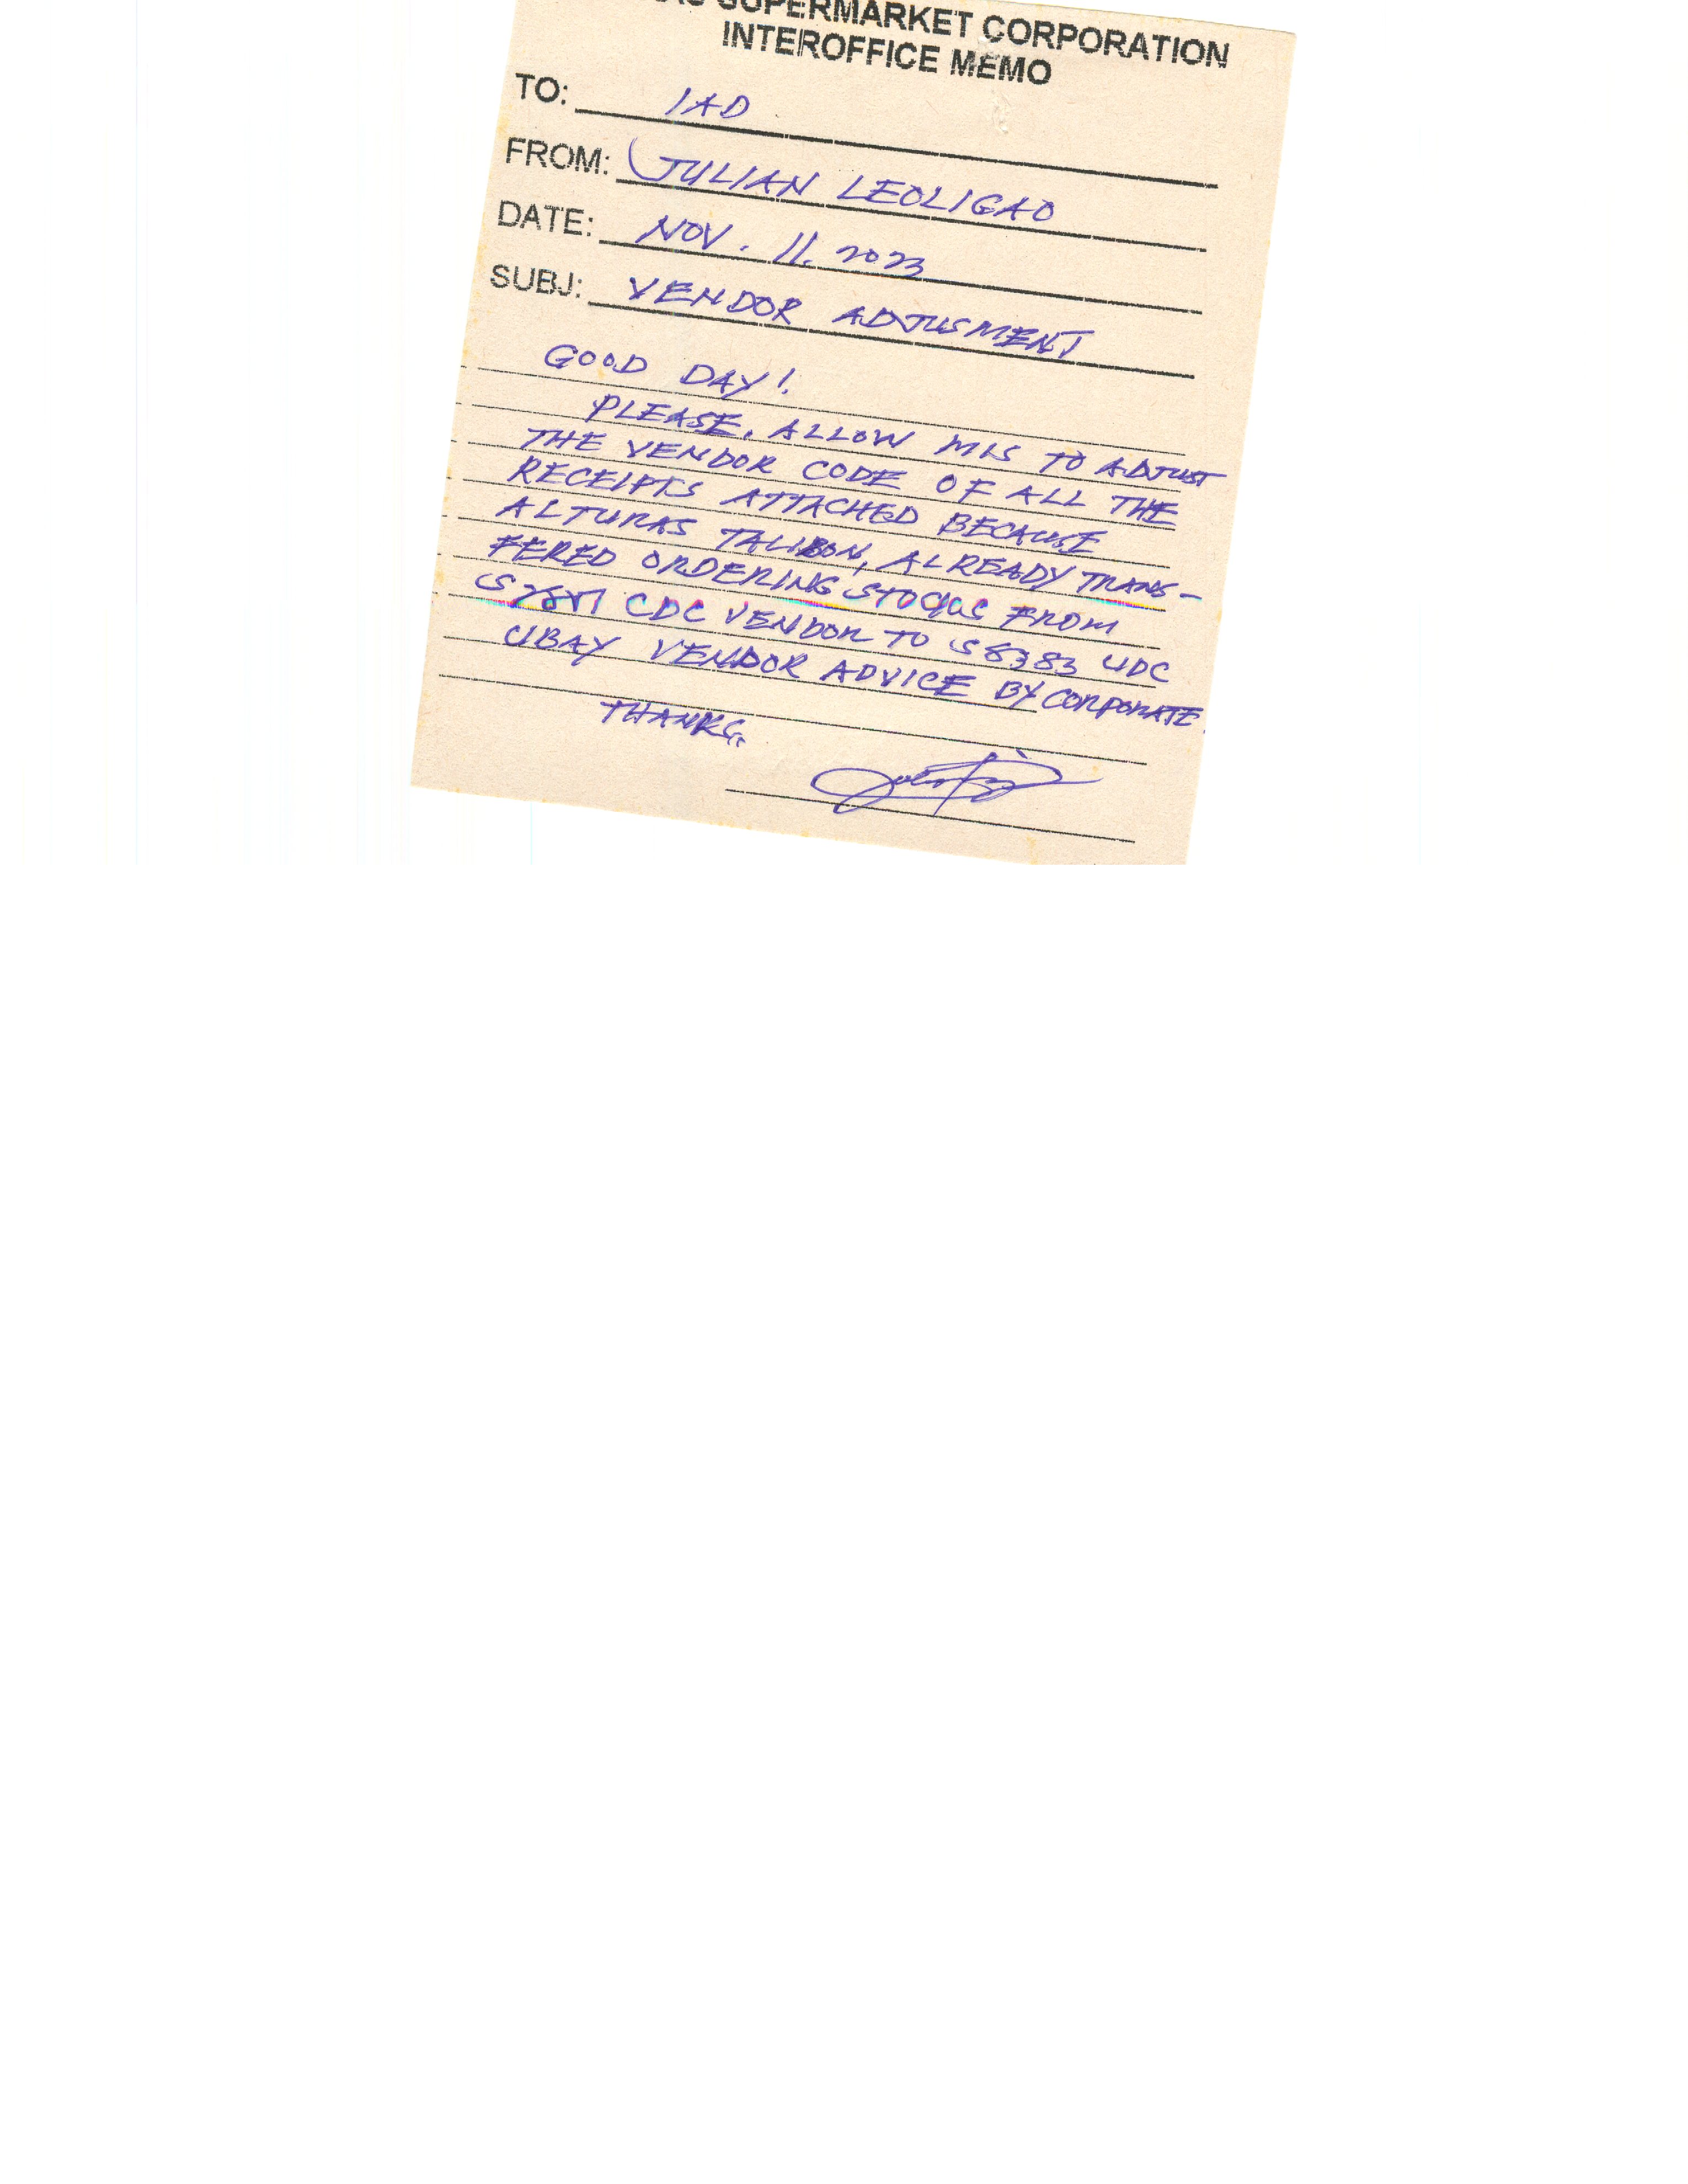 SUPERMARKET CORPORATION
INTEROFFICE MEMO
TO: IAD
FROM: JULIAN LEOLIGAO
DATE: NOV. 11. 2023
SUBJ: VENDOR ADJUSMENT
GOOD DAY!
PLEASE, ALLOW MIS TO ADJUST
THE VENDOR CODE OF ALL THE
RECEIPTS ATTACHED BECAUSE
ALTURAS TALIBON, ALREADY TRANS-
FERED ORDERING STOCKS FROM
CDC VENDOR TO S8383 UDC
UBAY VENDOR ADVICE BY CORPORATE.
THANKS.